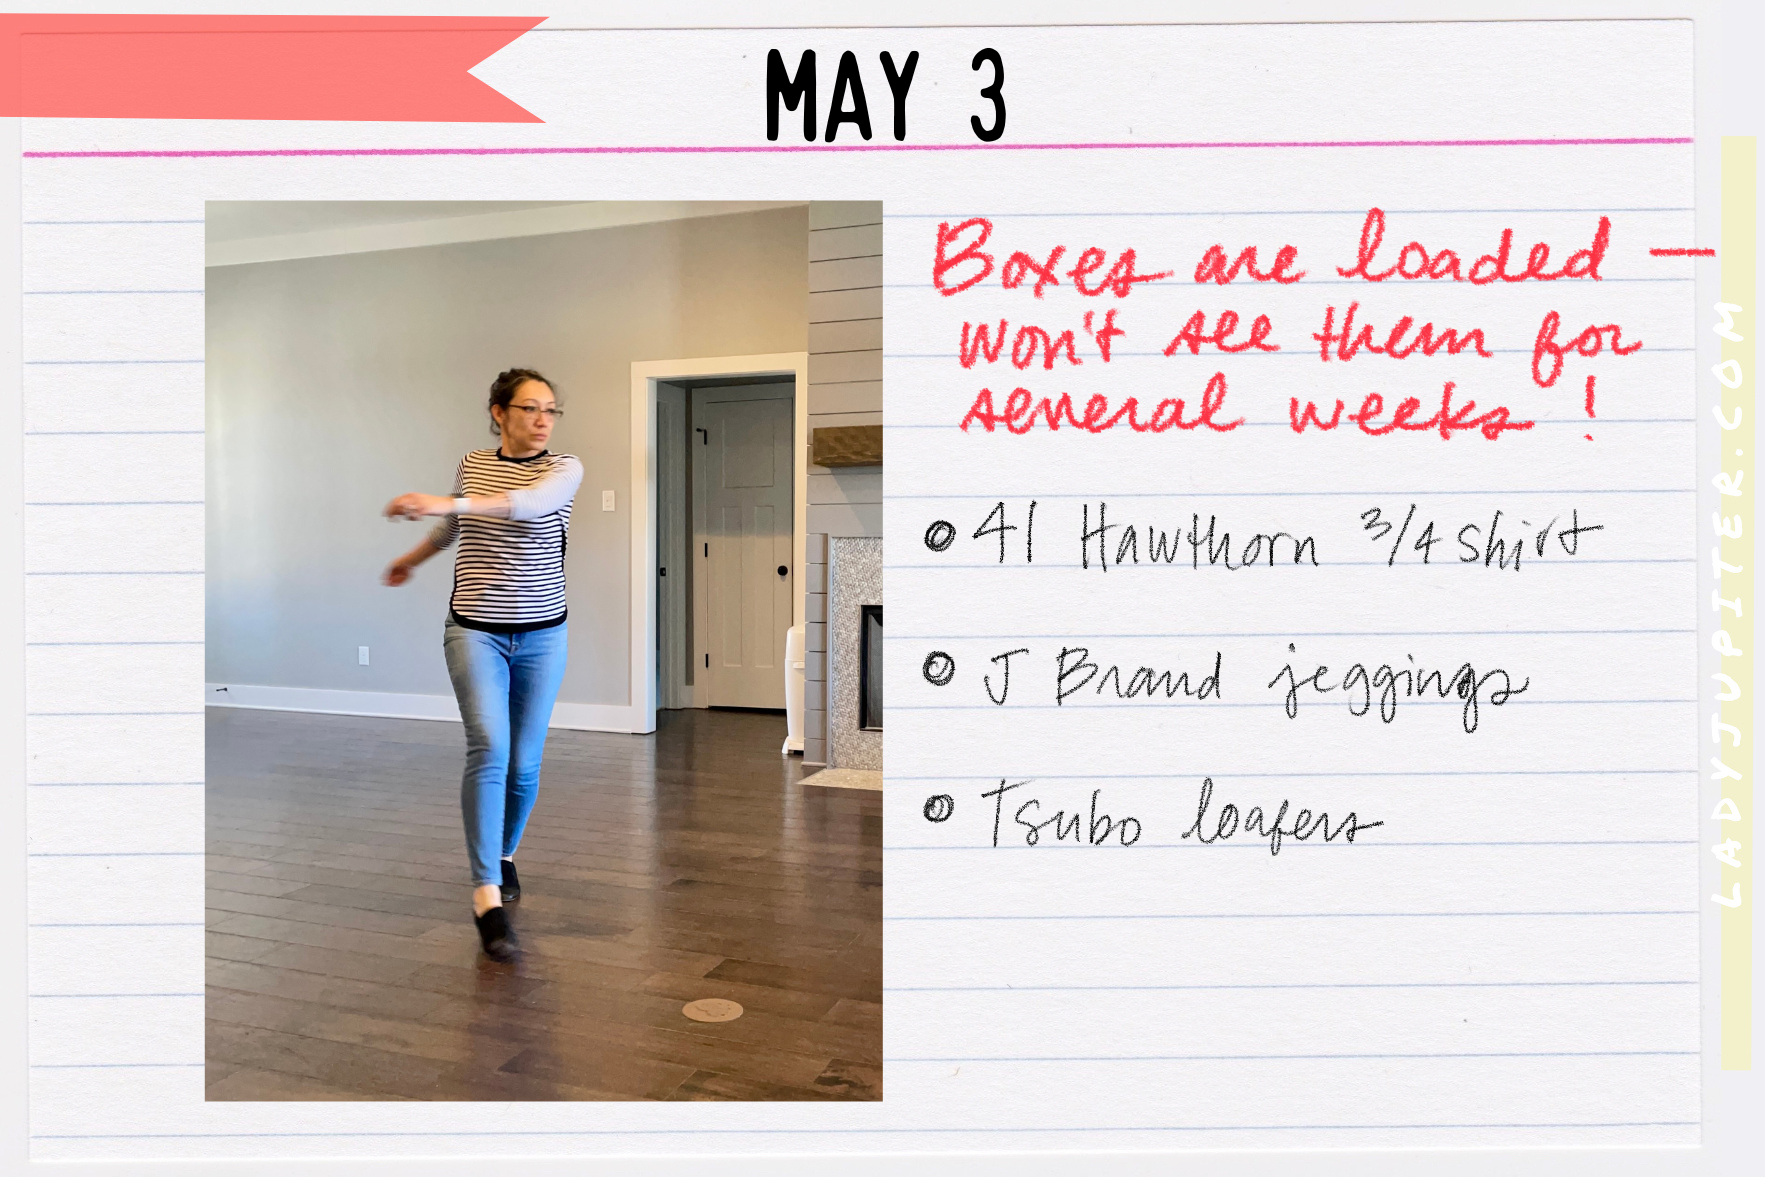 MAY 3
Boxes are loaded —
won't see them for
several weeks!
41 Hawthorn 3/4 shirt
J Brand jeggings
Tsubo loafers
LADYJUPITER.COM